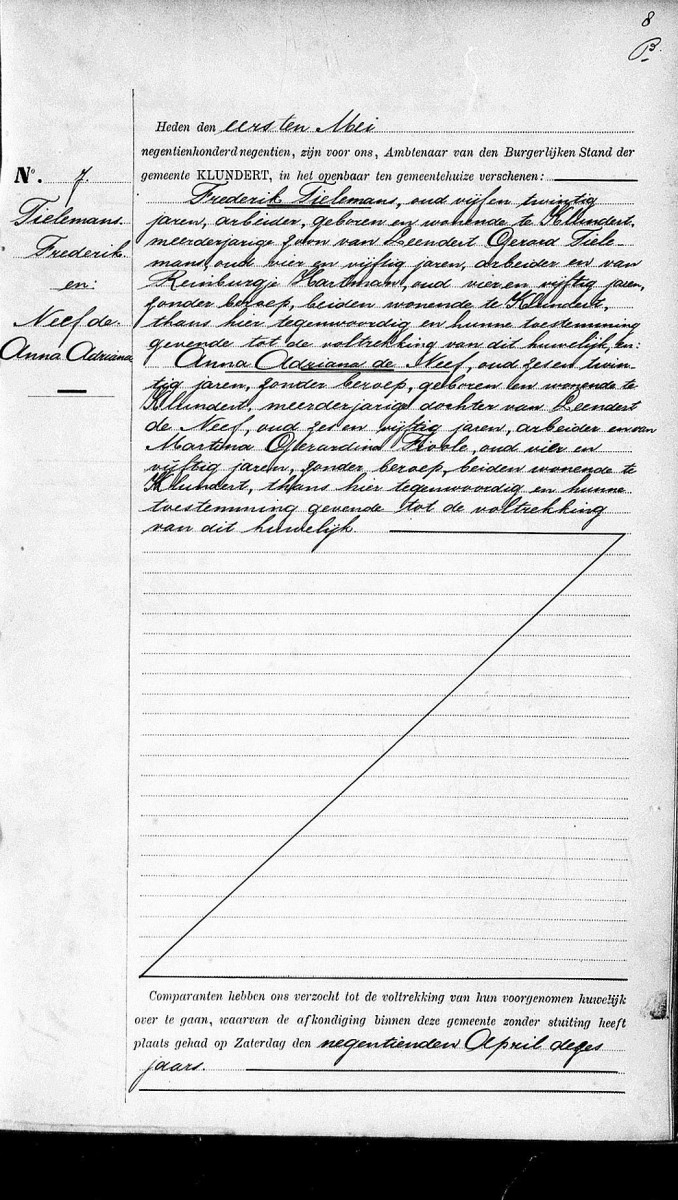 8
B.
Heden den eersten Mei
negentienhonderd negentien, zijn voor ons, Ambtenaar van den Burgerlijken Stand der
gemeente KLUNDERT, in het openbaar ten gemeentehuize verschenen:
No. 7.
Tielemans.
Frederik.
en:
Neef de.
Anna Adriana
Frederik Tielemans, oud vijfen twintig
jaren, arbeider, geboren en wonende te Klundert,
meerderjarige zoon van Leendert Gerard Tiele-
mans, oud vier en vijftig jaren, arbeider en van
Reinburgje Hartman, oud vier en vijftig jaren,
zonder beroep, beiden wonende te Klundert,
thans hier tegenwoordig en hunne toestemming
gevende tot de voltrekking van dit huwelijk, en:
Anna Adriana de Neef, oud zes en twin-
tig jaren, zonder beroep, geboren en wonende te
Klundert, meerderjarige dochter van Leendert
de Neef, oud zes en vijftig jaren, arbeider en van
Martina Gerardina Koole, oud vier en
vijftig jaren, zonder, beroep, beiden wonende te
Klundert, thans hier tegenwoordig en hunne
toestemming gevende tot de voltrekking
van dit huwelijk.
Comparanten hebben ons verzocht tot de voltrekking van hun voorgenomen huwelijk
over te gaan, waarvan de afkondiging binnen deze gemeente zonder stuiting heeft
plaats gehad op Zaterdag den negentienden April dezes
jaars.